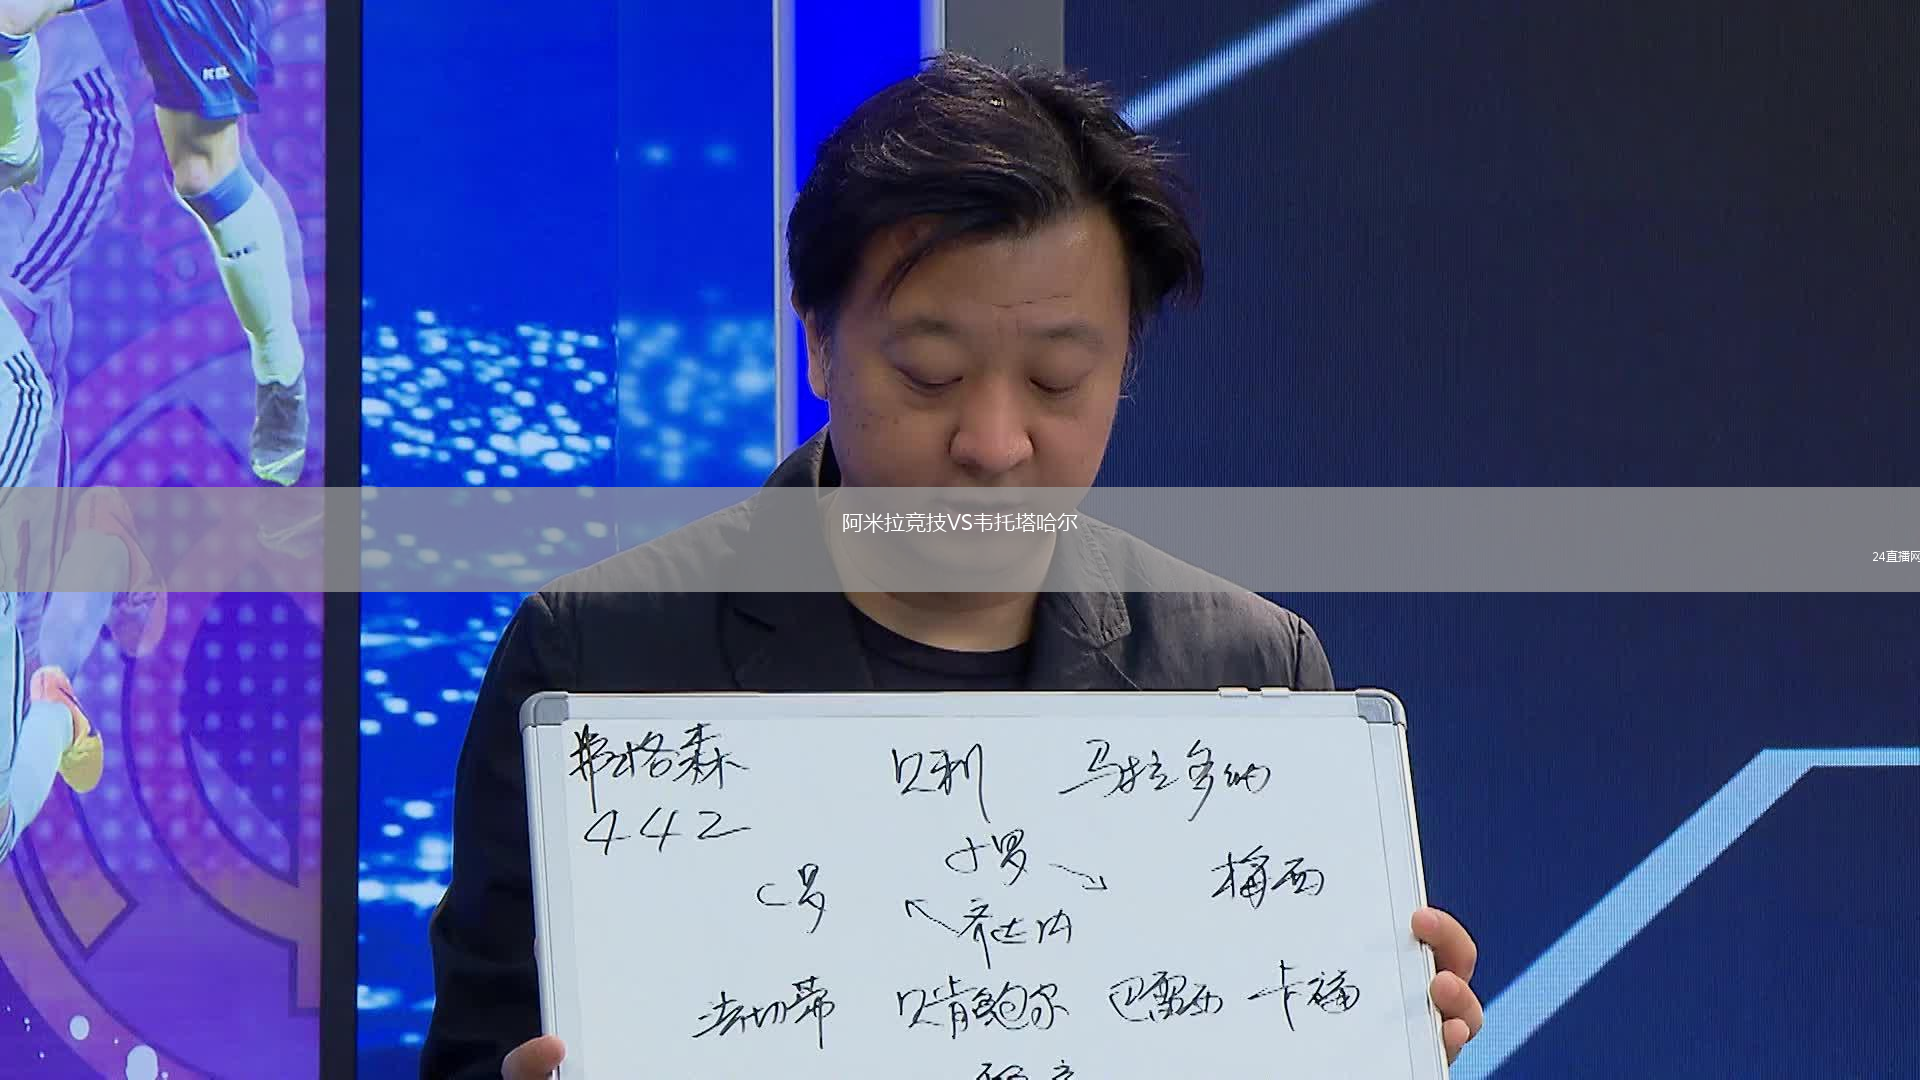 阿米拉竞技VS韦托塔哈尔
24直播网
弗格森 贝利 马拉多纳
442
小罗
C罗 梅西
齐达内
法切蒂 贝肯鲍尔 巴雷西 卡福